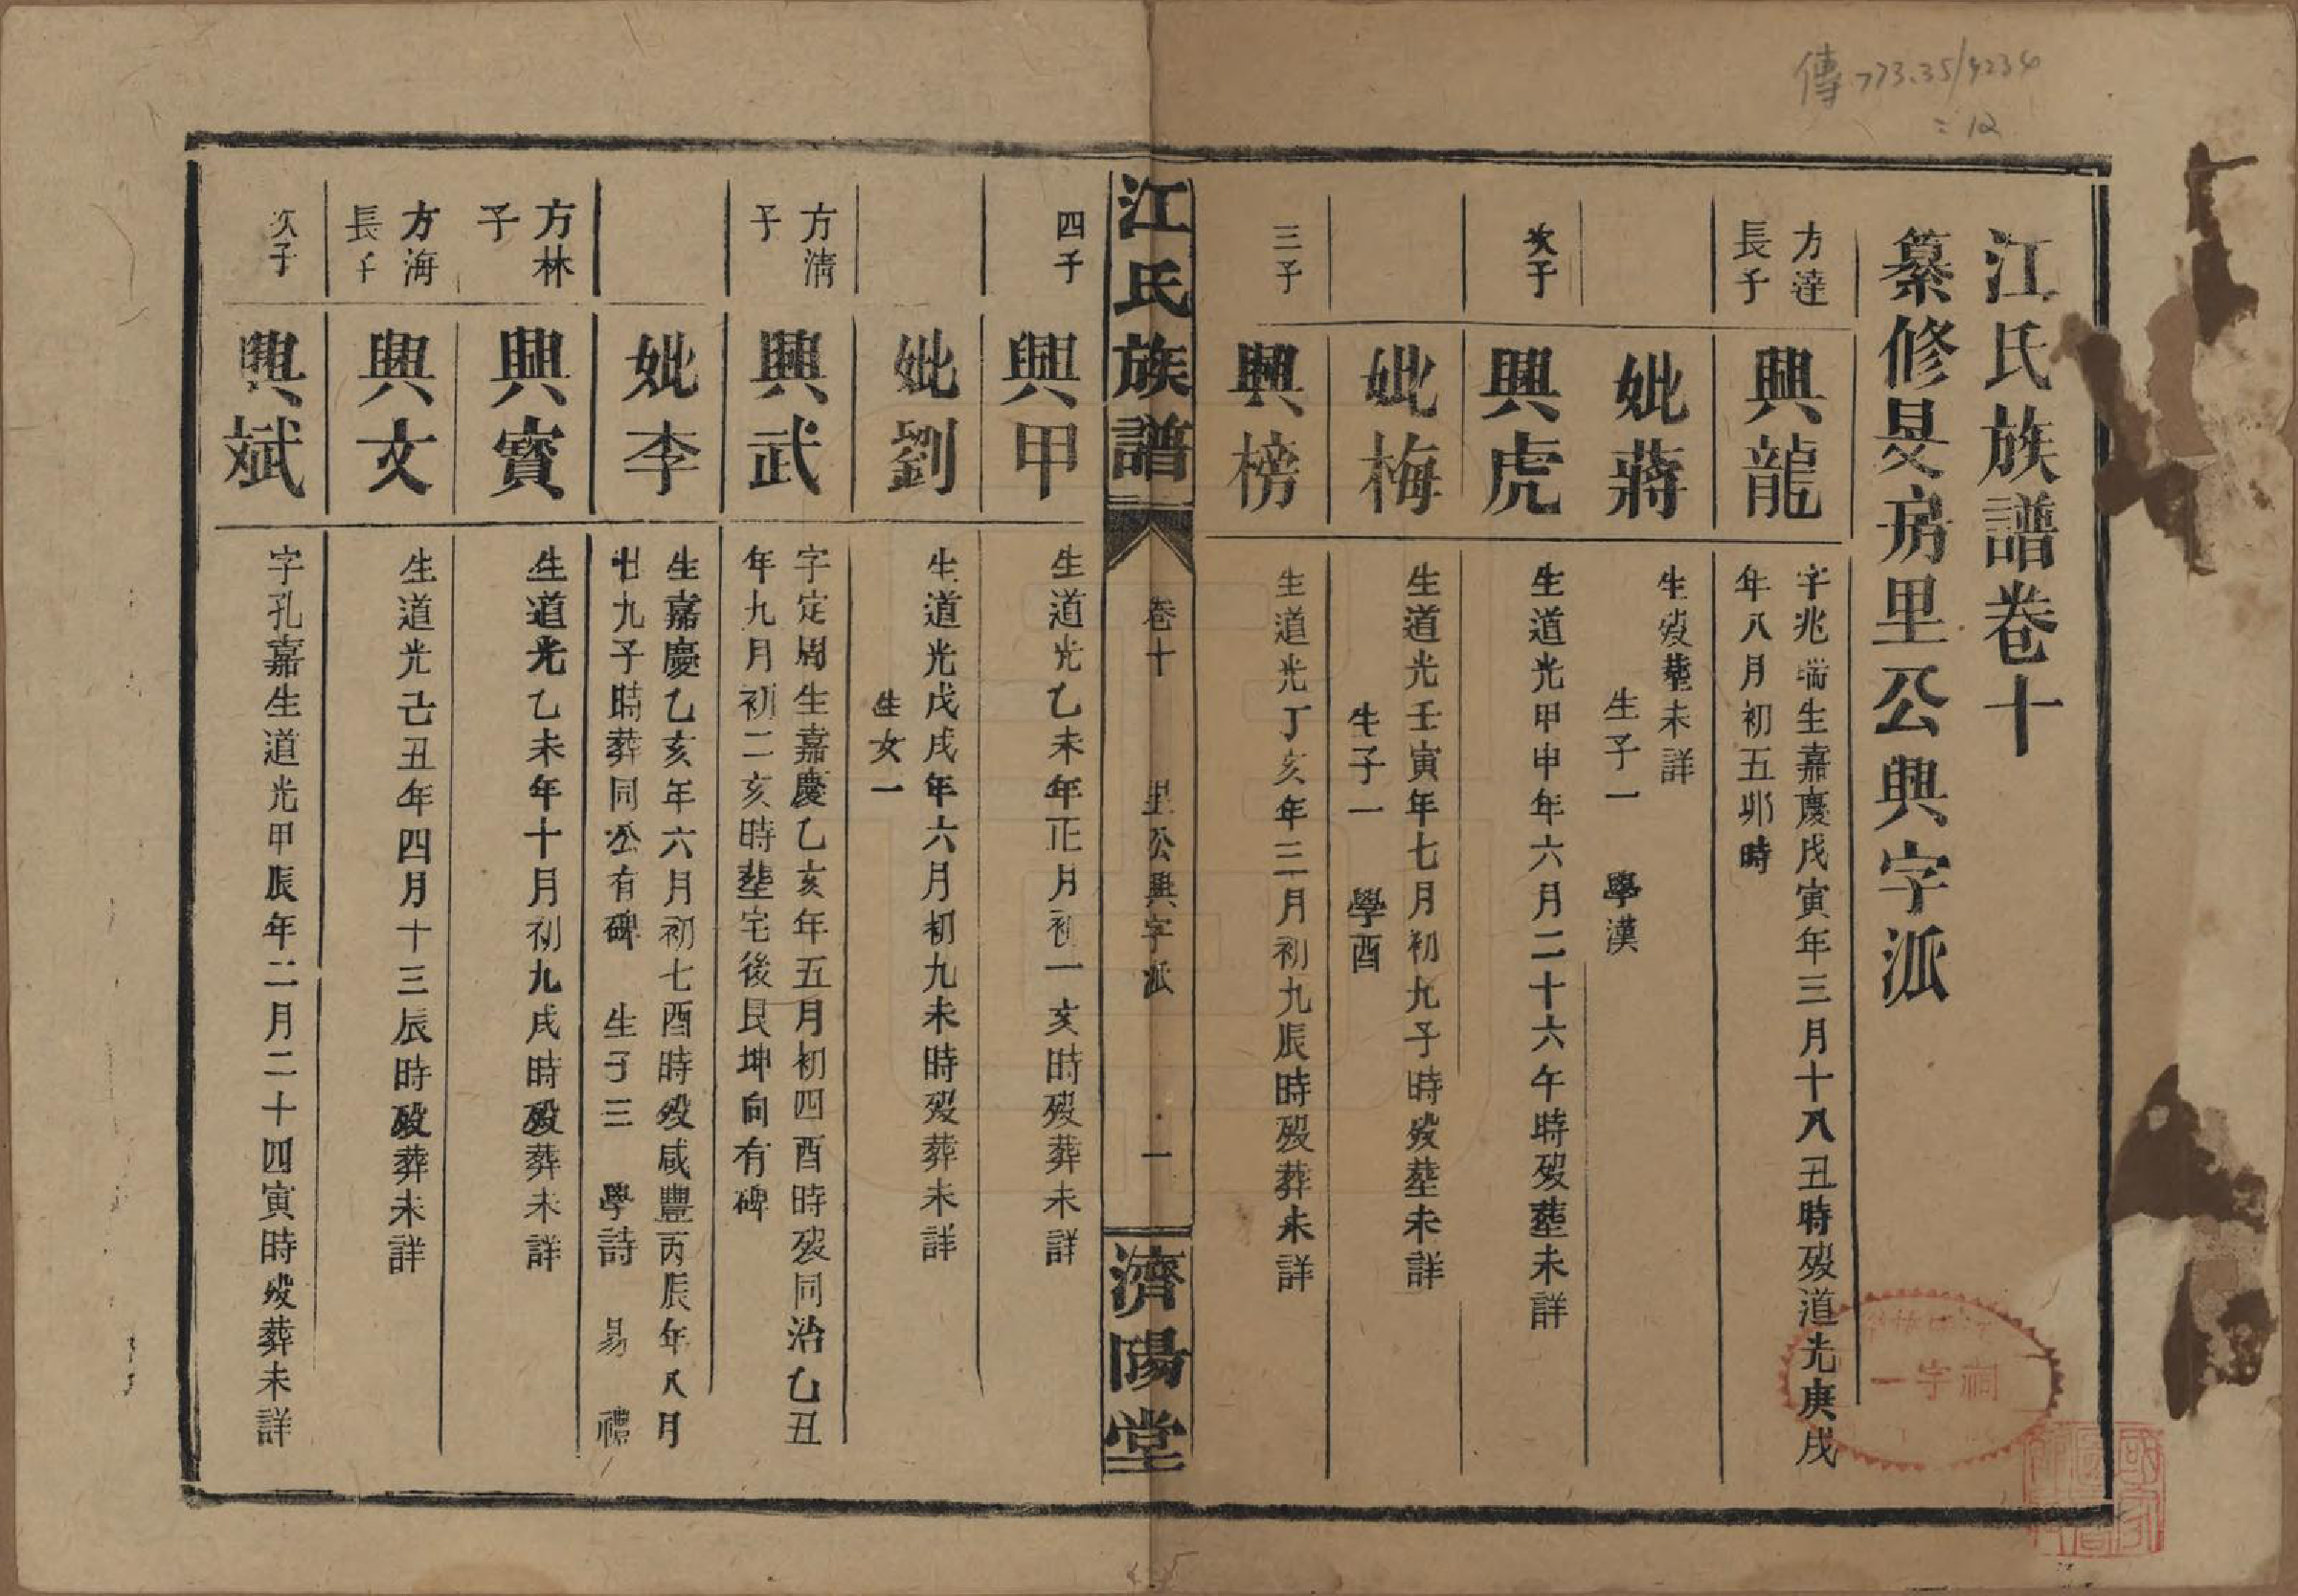 傳 773.35/4234
=12
江氏族譜卷十
纂修旻房里公興字派
方達
長子
興龍
字兆瑞生嘉慶戊寅年三月十八丑時歿道光庚戌
年八月初五卯時
妣蔣
生歿塟未詳
生子一 學漢
次子
興虎
生道光甲申年六月二十六午時歿塟未詳
妣梅
生道光壬寅年七月初九子時歿塟未詳
生子一 學酉
三子
興榜
生道光丁亥年三月初九辰時歿葬未詳
江氏族譜
卷十
里公興字派
一
濟陽堂
四子
興甲
生道光乙未年正月初一亥時歿葬未詳
妣劉
生道光戊戌年六月初九未時歿葬未詳
生女一
方清
子
興武
字定周生嘉慶乙亥年五月初四酉時歿同治乙丑
年九月初二亥時塟宅後艮坤向有碑
妣李
生嘉慶乙亥年六月初七酉時歿咸豐丙辰年八月
廿九子時葬同公有碑 生子三 學詩 易 禮
方林
子
興寶
生道光乙未年十月初九戌時歿葬未詳
方海
長子
興文
生道光己丑年四月十三辰時歿葬未詳
次子
興斌
字孔嘉生道光甲辰年二月二十四寅時歿葬未詳
祠字一